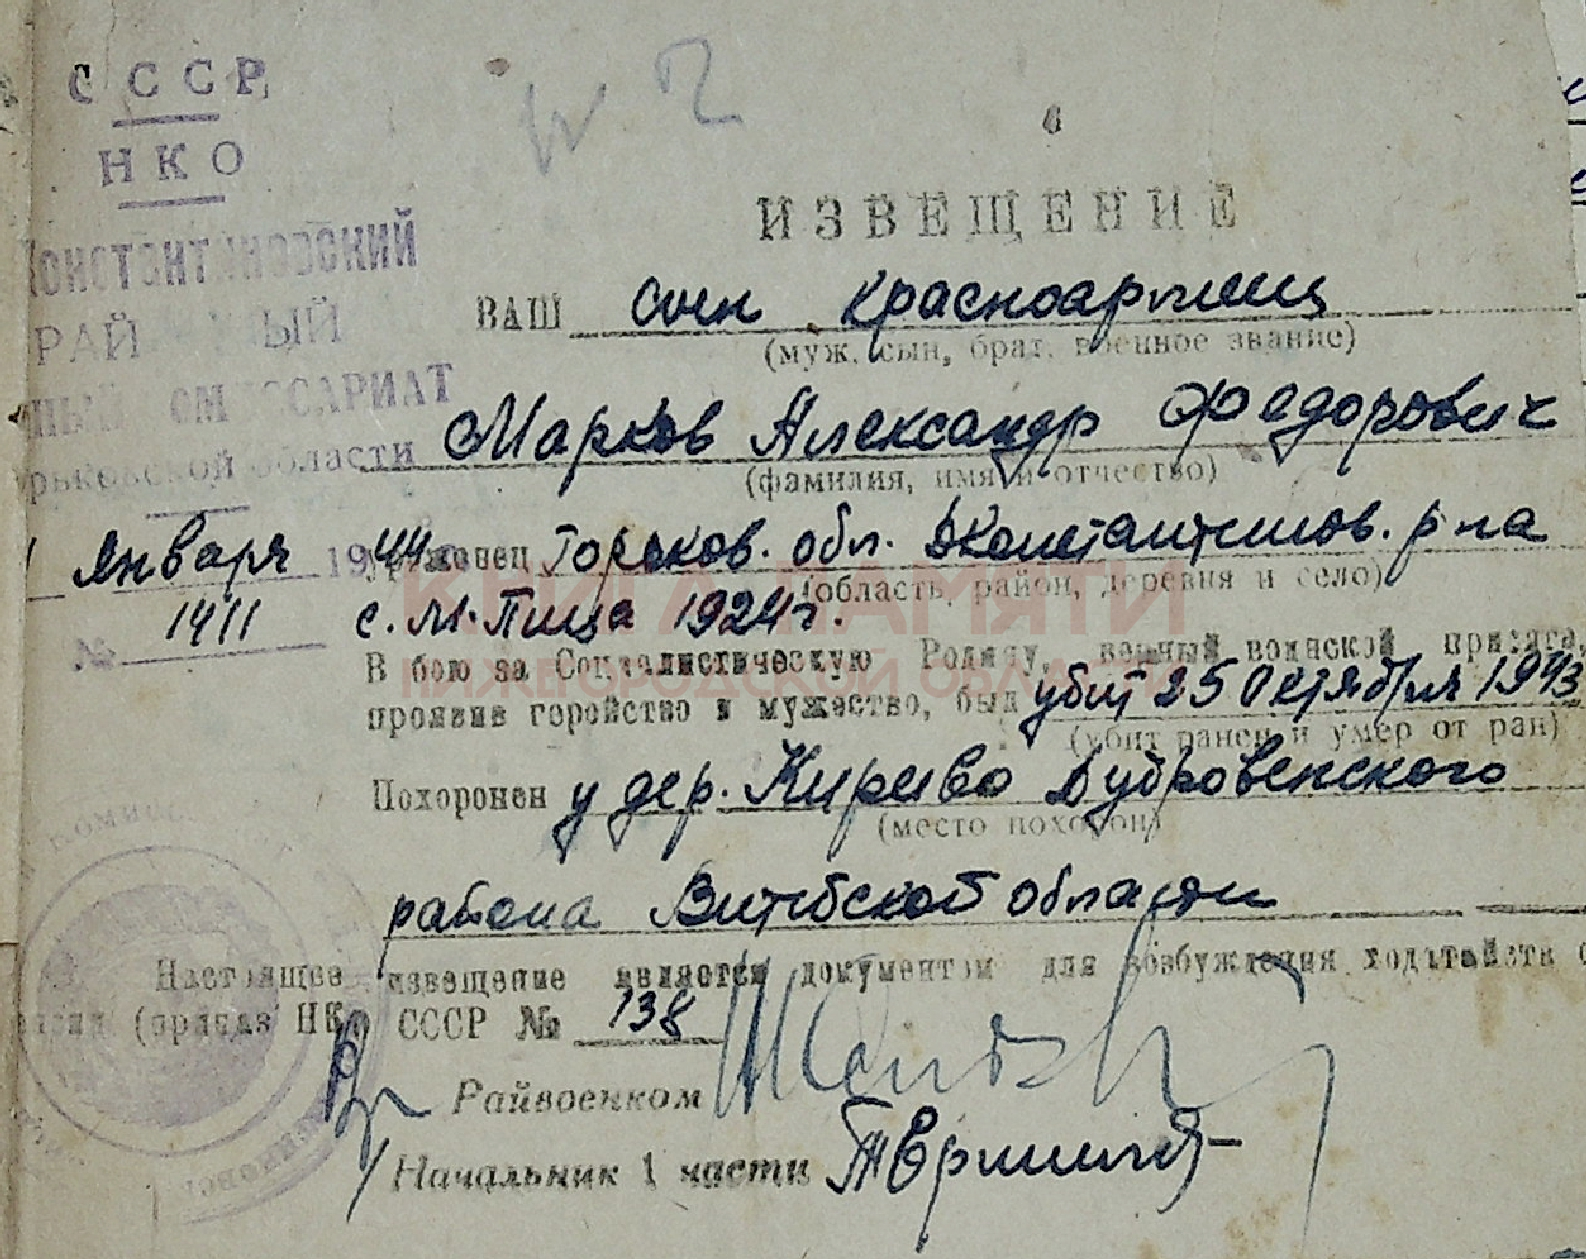 СССР
НКО
Константиновский
РАЙ НЫЙ
НЫЙ КОМИССАРИАТ
рьковской области
января 1944
№ 1411
ИЗВЕЩЕНИЕ
ВАШ сын красноармеец
(муж, сын, брат, военное звание)
Марков Александр Федорович
(фамилия, имя и отчество)
уроженец Горьков. обл. Константинов. р-на
(область, район, деревня и село)
с. М. Пица 1924 г.
В бою за Социалистическую Родину, верный воинской присяге,
проявив геройство и мужество, был убит 25 Октября 1943
(убит ранен и умер от ран)
Похоронен у дер. Киреево Дубровенского
(место похорон)
района Витебской области
Настоящее извещение является документом для возбуждения ходатайств о
(приказ НКО СССР № 138
Райвоенком
Начальник 1 части
КНИГА ПАМЯТИ
НИЖЕГОРОДСКОЙ ОБЛАСТИ